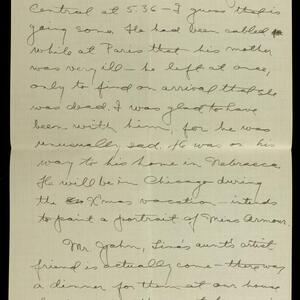 Central at 5.36 – I guess that is
going some. He had been called
while at Paris that his mother
was very ill – he left at once,
only to find on arrival that she
was dead. I was glad to have
been with him, for he was
unusually sad. He was on his
way to his home in Nebrasca.
He will be in Chicago during
the Xmas vacation – intends
to paint a portrait of Miss Armour.
Mr. John, aunt's artist
friend is actually come – there was
a dinner for them at our house